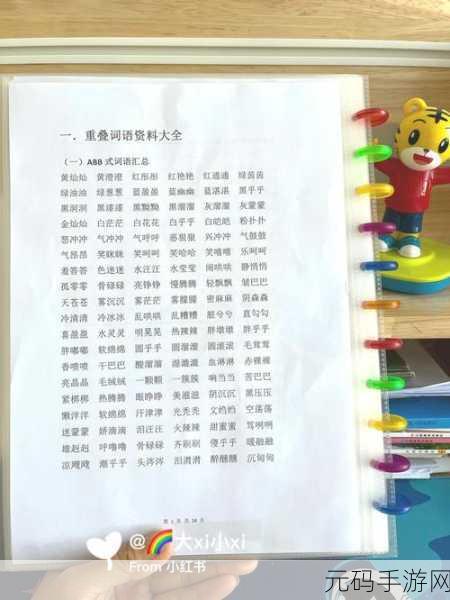 一．重叠词语资料大全
（一）ABB 式词语汇总
黄灿灿 黄澄澄 红彤彤 红艳艳 红通通 绿茵茵
绿油油 绿葱葱 蓝盈盈 蓝幽幽 蓝湛湛 黑乎乎
黑洞洞 黑漆漆 黑黝黝 黑溜溜 灰溜溜 灰蒙蒙
金灿灿 白茫茫 白花花 白乎乎 白皑皑 粉扑扑
怒冲冲 气冲冲 气呼呼 恶狠狠 兴冲冲 气鼓鼓
气昂昂 笑眯眯 笑呵呵 笑哈哈 笑嘻嘻 乐呵呵
羞答答 色迷迷 水汪汪 水莹莹 闹哄哄 静悄悄
孤零零 骨碌碌 亮铮铮 慢腾腾 轻飘飘 皱巴巴
天苍苍 雾沉沉 雾茫茫 雾朦朦 密麻麻 阴森森
冷清清 冷冰冰 乱哄哄 乱糟糟 脏兮兮 直勾勾
喜盈盈 水灵灵 明晃晃 热辣辣 胖墩墩 胖乎乎
胖嘟嘟 软绵绵 圆乎乎 圆溜溜 圆滚滚 毛茸茸
香喷喷 干巴巴 酸溜溜 湿漉漉 血淋淋 赤裸裸
亮晶晶 毛绒绒 一颗颗 一簇簇 响当当 苦巴巴
紧梆梆 热腾腾 眼睁睁 美滋滋 阴沉沉 黑压压
懒洋洋 软绵绵 汗津津 光秃秃 文绉绉 空荡荡
迷蒙蒙 娇滴滴 泪汪汪 火辣辣 甜蜜蜜 骂咧咧
雄赳赳 呼噜噜 骨碌碌 齐刷刷 傻乎乎 暖融融
凉飕飕 潮乎乎 头涔涔 泪涓涓 醉醺醺 沉甸甸
@🌈大xi小xi
From 小红书
元码手游网